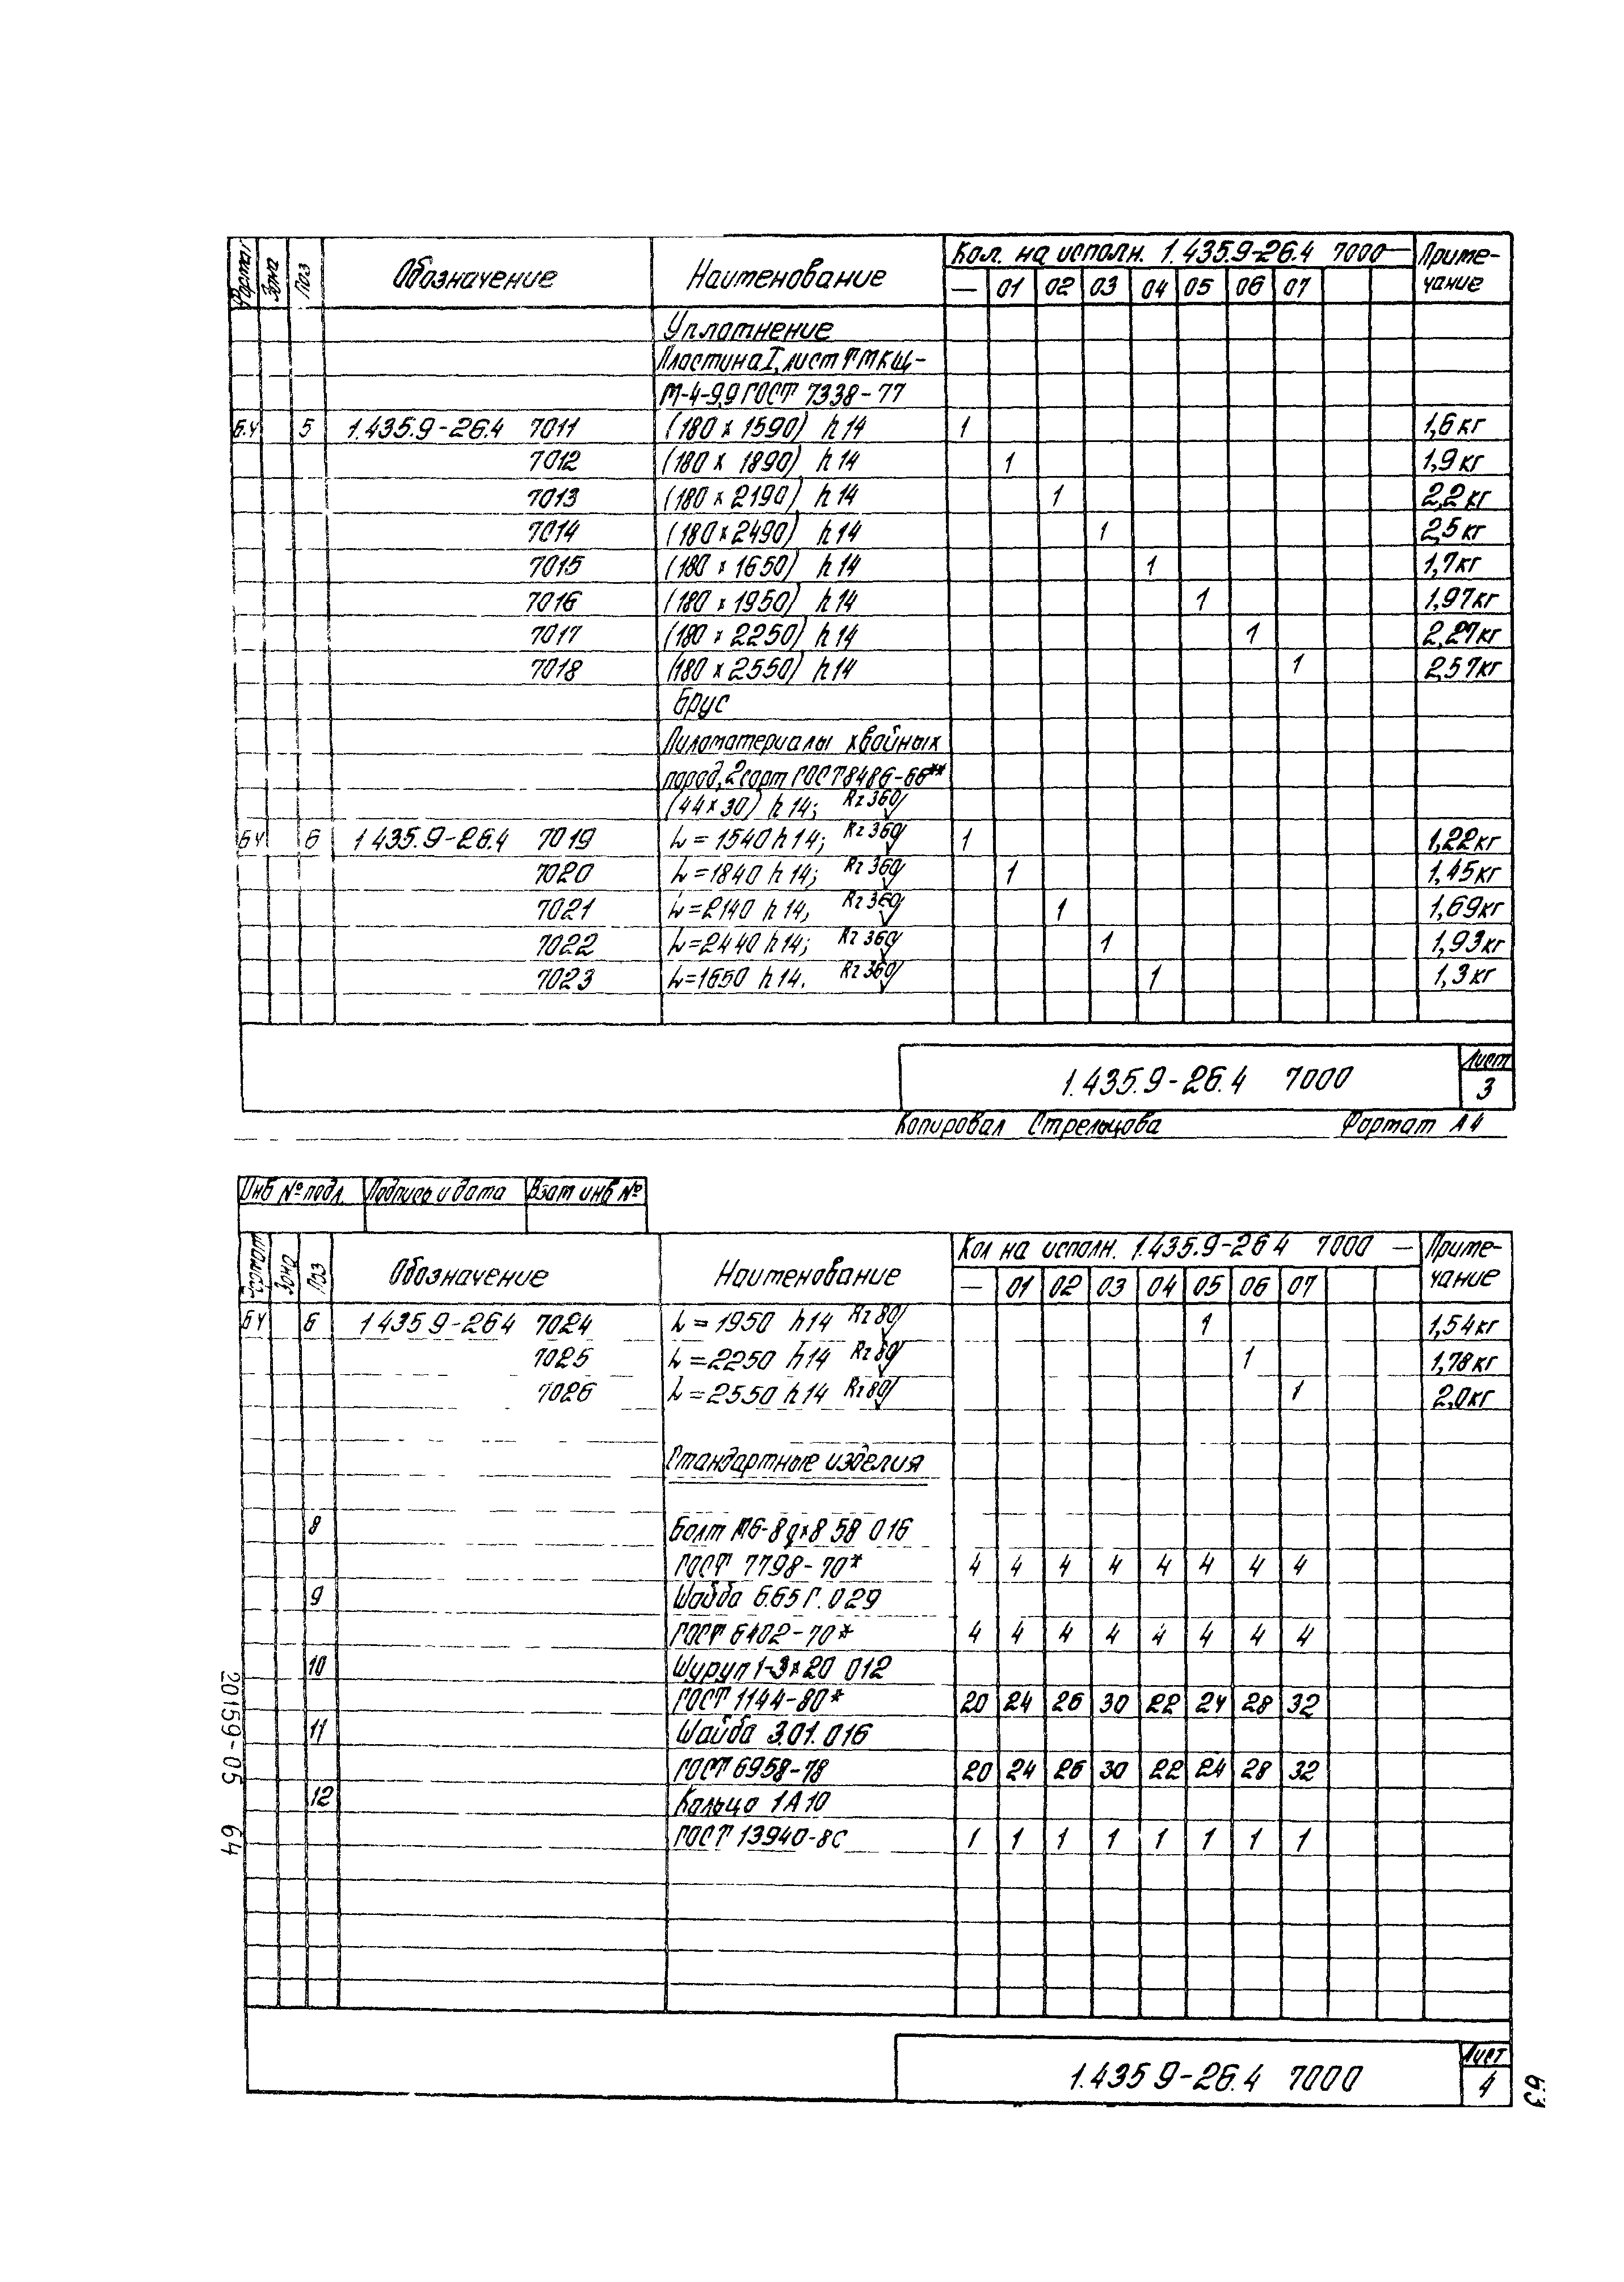 Формат Зона Поз Обозначение Наименование Кол. на исполн. 1.435.9-26.4 7000— Приме-
— 01 02 03 04 05 06 07 чание
Уплотнение
Пластина I, лист ТМКЩ-
М-4-9,9 ГОСТ 7338-77
Б.Ч 5 1.435.9-26.4 7011 (180 х 1590) h14 1 1,6кг
7012 (180 х 1890) h14 1 1,9кг
7013 (180 х 2190) h14 1 2,2кг
7014 (180 х 2490) h14 1 2,5кг
7015 (180 х 1650) h14 1 1,7кг
7016 (180 х 1950) h14 1 1,97кг
7017 (180 х 2250) h14 1 2,27кг
7018 (180 х 2550) h14 1 2,57кг
Брус
Пиломатериалы хвойных
пород, 2сорт ГОСТ 8486-66**
(44×30) h14; Rz 360
БЧ 6 1 435.9-26.4 7019 L=1540 h14; Rz 360 1 1,22кг
7020 L=1840 h14; Rz 360 1 1,45кг
7021 L=2140 h14, Rz 360 1 1,69кг
7022 L=2440 h14; Rz 360 1 1,93кг
7023 L=1650 h14. Rz 360 1 1,3кг
1.435.9-26.4 7000 Лист
3
Копировал Стрельцова Формат А4
Инв № подл. Подпись и дата Взам инв №
Формат Зона Поз Обозначение Наименование Кол на исполн. 1.435.9-26 4 7000 — Приме-
— 01 02 03 04 05 06 07 чание
БЧ 6 1 435 9-26 4 7024 L=1950 h14 Rz 80 1 1,54кг
7025 L=2250 h14 Rz 80 1 1,78кг
7026 L=2550 h14 Rz 80 1 2,0кг
Стандартные изделия
8 Болт М6-8gх8 58 016
ГОСТ 7798-70* 4 4 4 4 4 4 4 4
9 Шайба 6.65Г.029
ГОСТ 6402-70* 4 4 4 4 4 4 4 4
10 Шуруп 1-3х20 012
ГОСТ 1144-80* 20 24 26 30 22 24 28 32
11 Шайба 3.01.016
ГОСТ 6958-78 20 24 26 30 22 24 28 32
12 Кольцо 1А10
ГОСТ 13940-8С 1 1 1 1 1 1 1 1
1.435 9-26.4 7000 Лист
4
20159-05 64
63